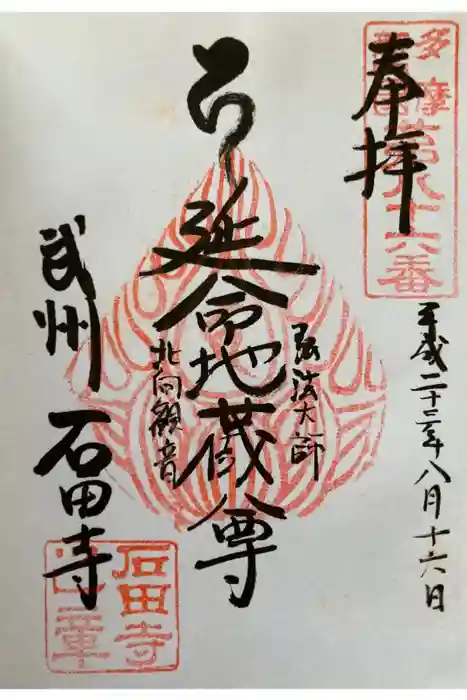 奉拝
多摩
第八十六番
平成二十三年八月十六日
弘法大師
延命地蔵尊
北向観音
武州 石田寺
石田寺
章